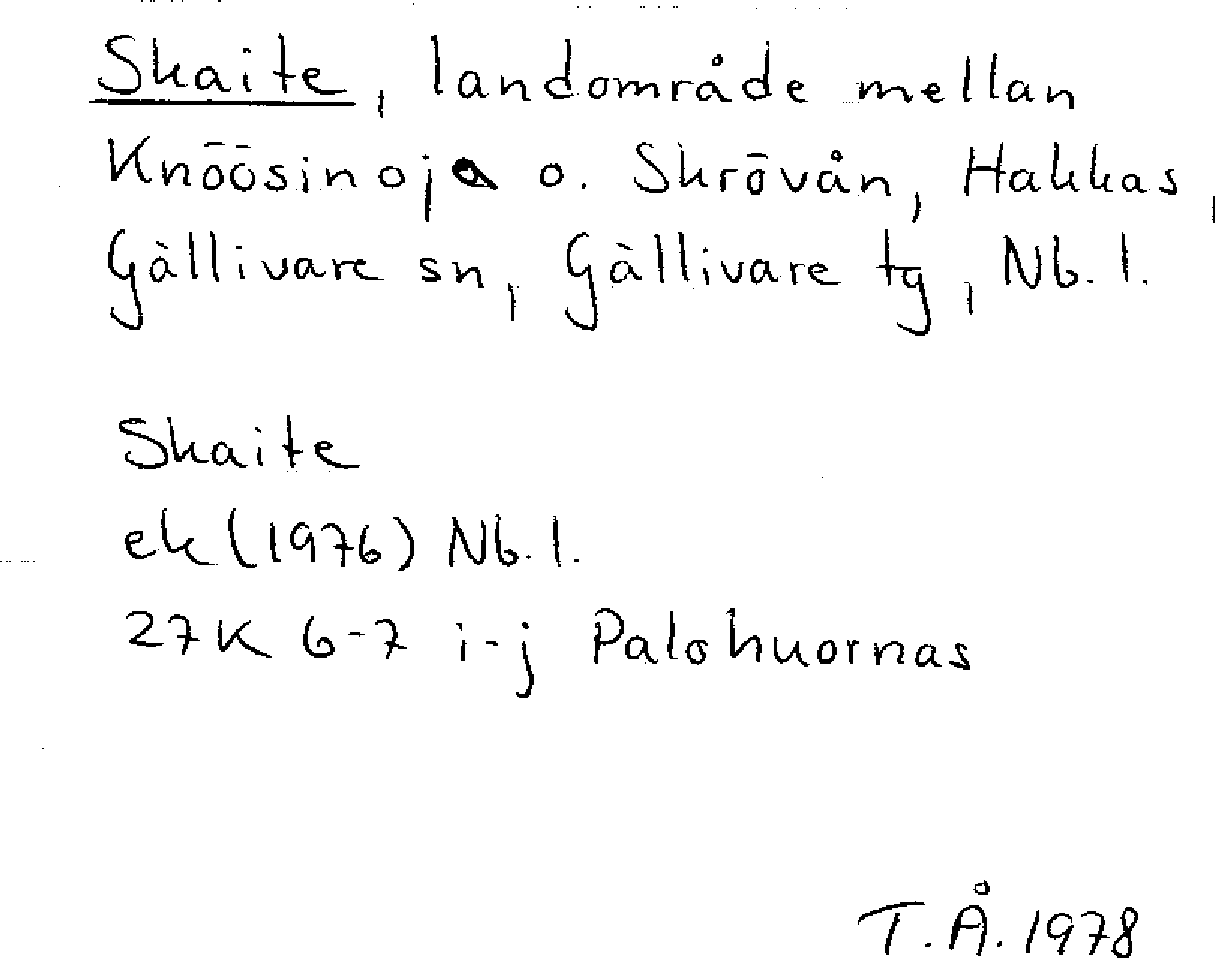 Skaite, landområde mellan
Knöösinoja o. Skrövån, Hakkas,
Gällivare sn, Gällivare tg, Nb. l.
Skaite
ek (1976) Nb. l.
27K 6-7 i-j Palohuornas
T.Å. 1978